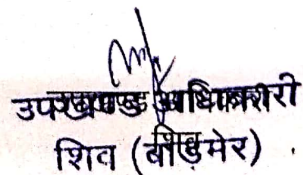 उपखण्ड अधिकारी
शिव (बाड़मेर)